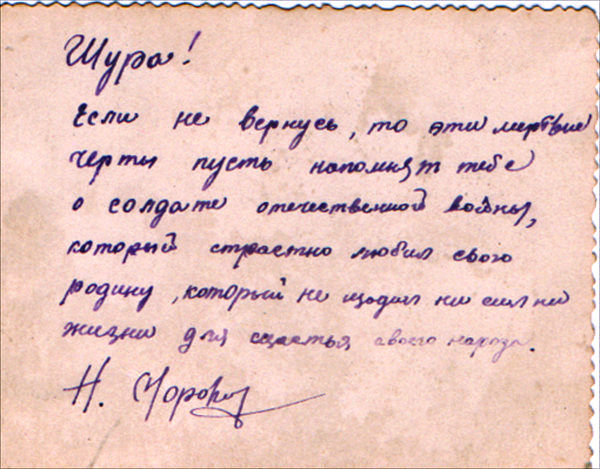 Шура!
Если не вернусь, то эти мертвые
черты пусть напомнят тебе
о солдате отечественной войны,
который страстно любил свою
родину, который не щадил ни сил ни
жизни для счастья своего народа.
Н.